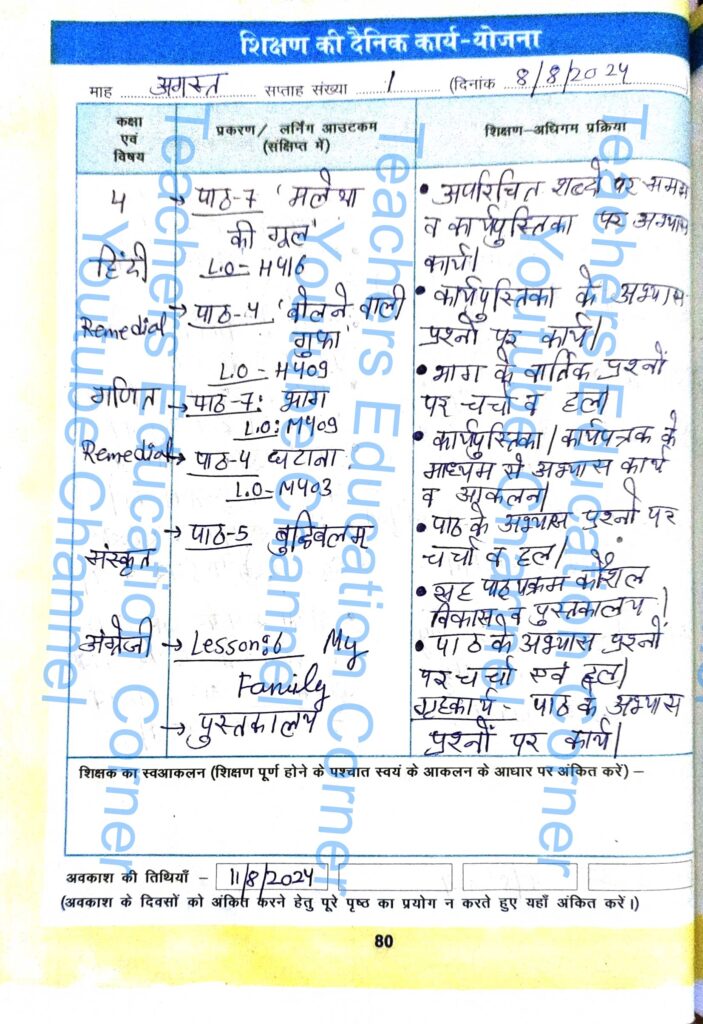 शिक्षण की दैनिक कार्य-योजना
माह अगस्त सप्ताह संख्या 1 (दिनांक 8/8/2024
कक्षा
एवं
विषय
प्रकरण/ लर्निंग आउटकम
(संक्षिप्त में)
शिक्षण-अधिगम प्रक्रिया
4
हिंदी
→ पाठ-7 'मलेथा
की गूल'
L.O - H416
Remedial
→ पाठ-4 'बोलने वाली
गुफा'
L.O - H409
गणित
→ पाठ-7: भाग
L.O: M409
Remedial
→ पाठ-4 घटाना
L.O - M403
संस्कृत
→ पाठ-5 बुद्धिबलम्
अंग्रेजी
→ Lesson:6 My
Family
→ पुस्तकालय
• अपरिचित शब्दो पर समझ
व कार्यपुस्तिका पर अभ्यास
कार्य।
• कार्यपुस्तिका के अभ्यास
प्रश्नों पर कार्य।
• भाग के वार्तिक प्रश्नों
पर चर्चा व हल।
• कार्यपुस्तिका/कार्यपत्रक के
माध्यम से अभ्यास कार्य
व आकलन।
• पाठ के अभ्यास प्रश्नो पर
चर्चा व हल।
• सह पाठ्यक्रम कौशल
विकास व पुस्तकालय।
• पाठ के अभ्यास प्रश्नों
पर चर्चा एवं हल।
गृहकार्य - पाठ के अभ्यास
प्रश्नों पर कार्य।
शिक्षक का स्वआकलन (शिक्षण पूर्ण होने के पश्चात स्वयं के आकलन के आधार पर अंकित करें) –
अवकाश की तिथियाँ – 11/8/2024
(अवकाश के दिवसों को अंकित करने हेतु पूरे पृष्ठ का प्रयोग न करते हुए यहाँ अंकित करें।)
80
Teachers Education Corner
Youtube Channel
Teachers Education Corner
Youtube Channel
Teachers Education Corner
Youtube Channel